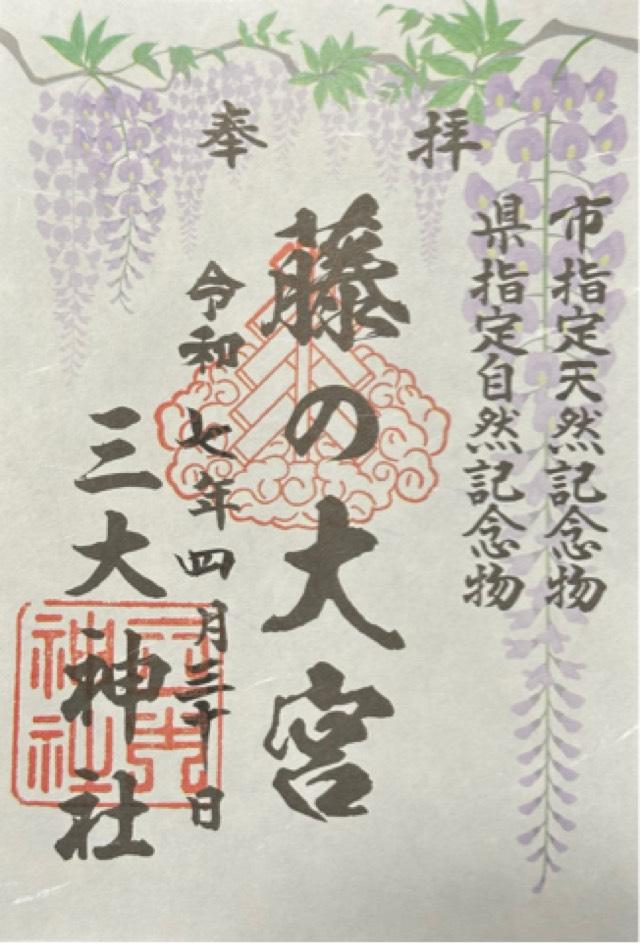 奉拝
市指定天然記念物
県指定自然記念物
藤の大宮
令和七年四月三十日
三大神社
三大神社